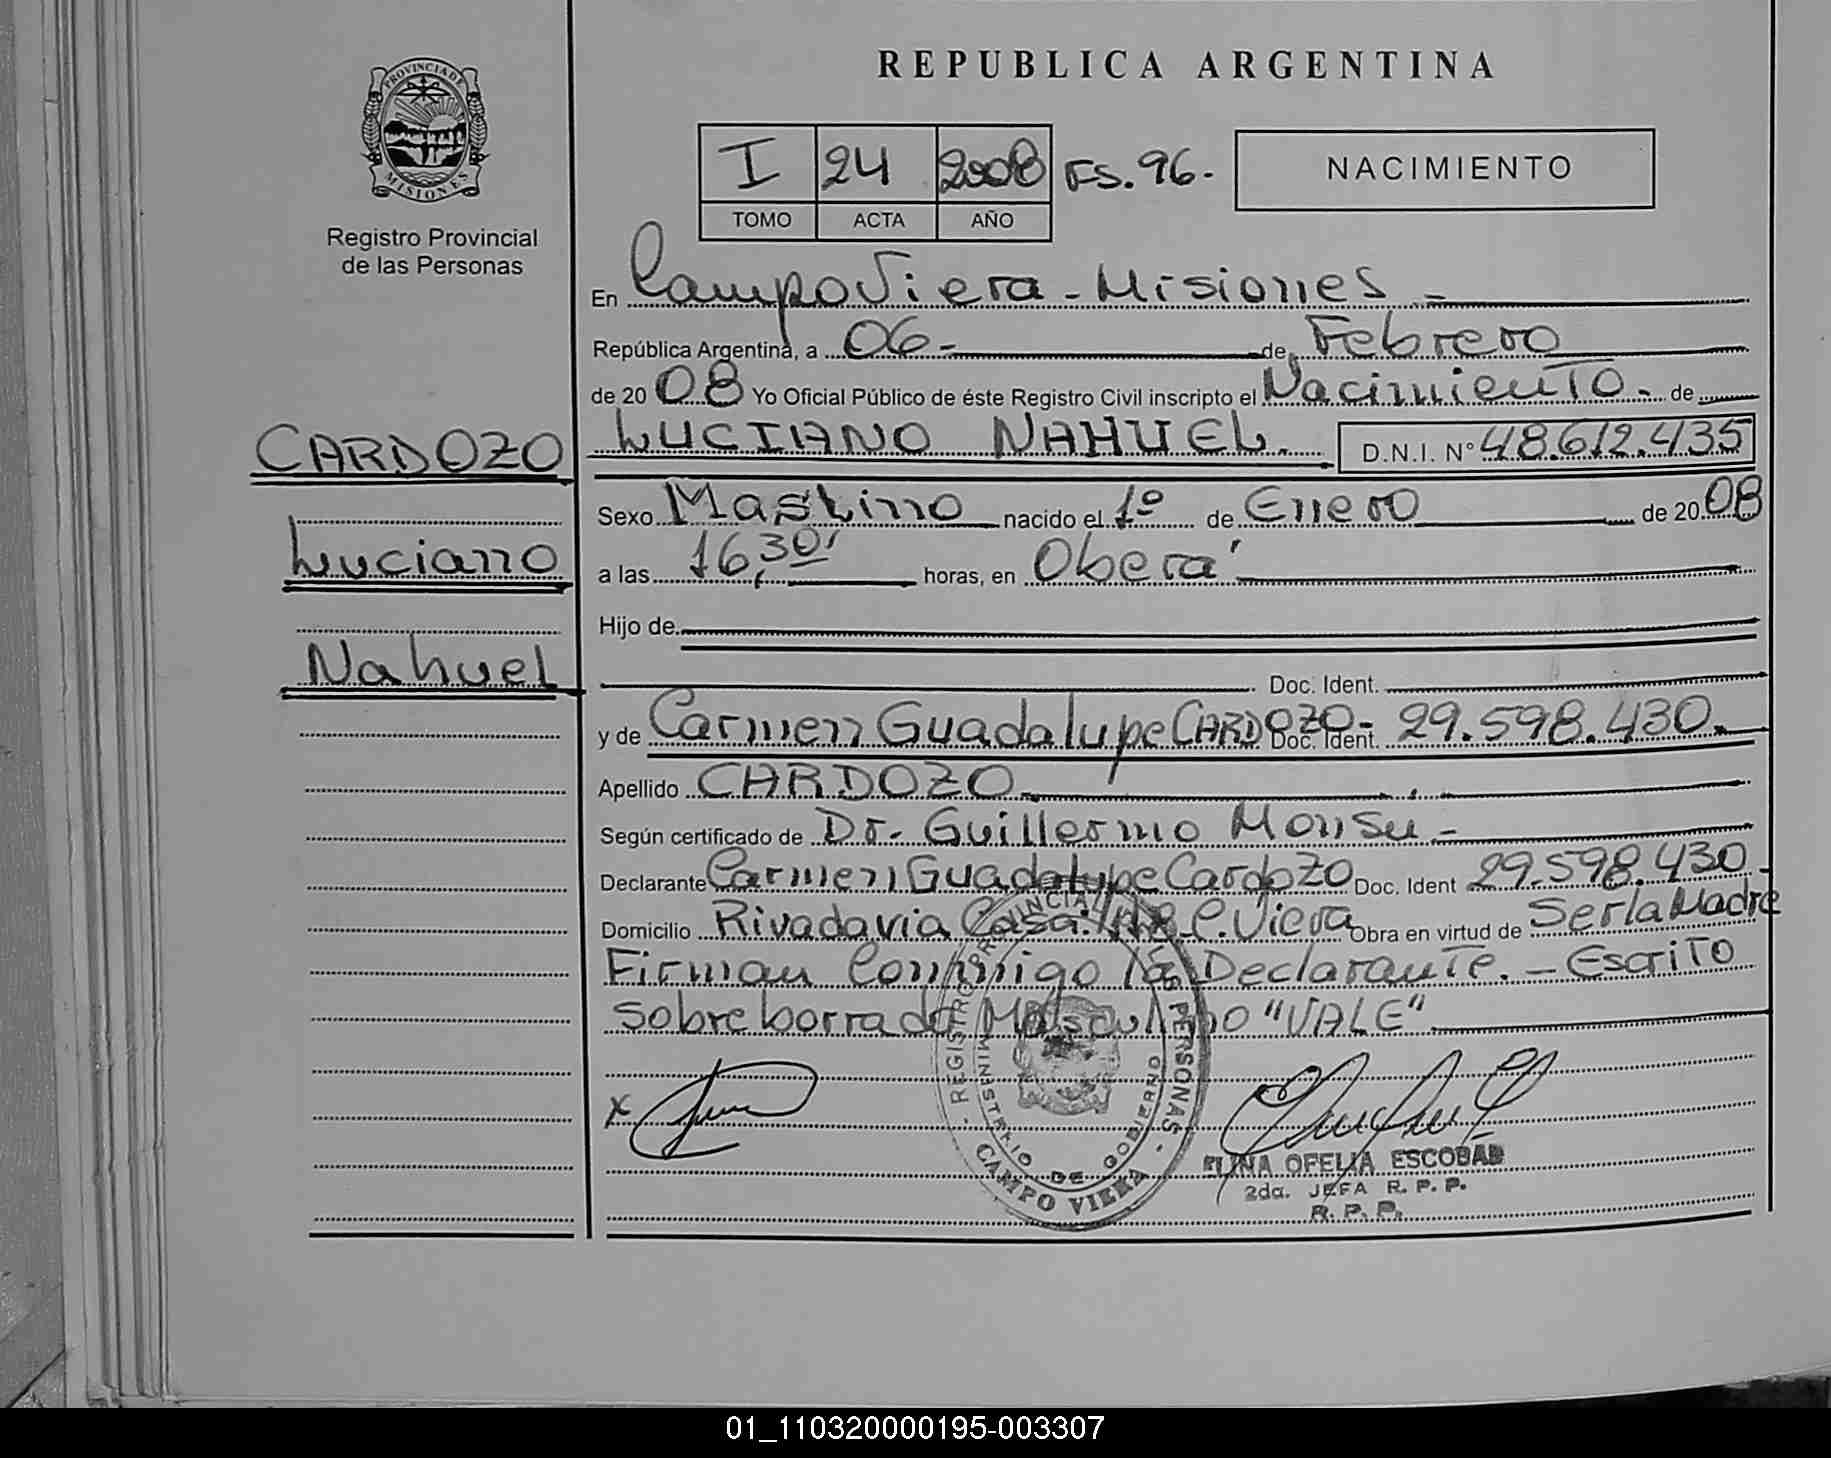 REPUBLICA ARGENTINA
PROVINCIA DE MISIONES
Registro Provincial
de las Personas
I 24 2008 FS. 96.-
TOMO ACTA AÑO
NACIMIENTO
En Campo Viera - Misiones -
República Argentina, a 06 - de Febrero
de 20 08 Yo Oficial Público de éste Registro Civil inscripto el Nacimiento - de
CARDOZO
Luciano
Nahuel
LUCIANO NAHUEL. D.N.I. N° 48.612.435
Sexo nacido el 1° de Enero de 20 08
a las 16,30' horas, en Oberá
Hijo de
Doc. Ident.
y de Carmen Guadalupe CARDOZO- Doc. Ident. 29.598.430.
Apellido CARDOZO
Según certificado de Dr. Guillermo Monsu -
Declarante Carmen Guadalupe Cardozo Doc. Ident 29.598.430 -
Domicilio Rivadavia Casa: C. Viera Obra en virtud de Ser la Madre
Firman Conmigo la Declarante. - Escrito
sobre borrado Masculino "VALE"
x
REGISTRO PROVINCIAL PERSONAS
MINISTERIO DE GOBIERNO
- CAMPO VIERA -
OFELIA ESCOBAR
2da. JEFA R. P. P.
R. P. P.
01_110320000195-003307